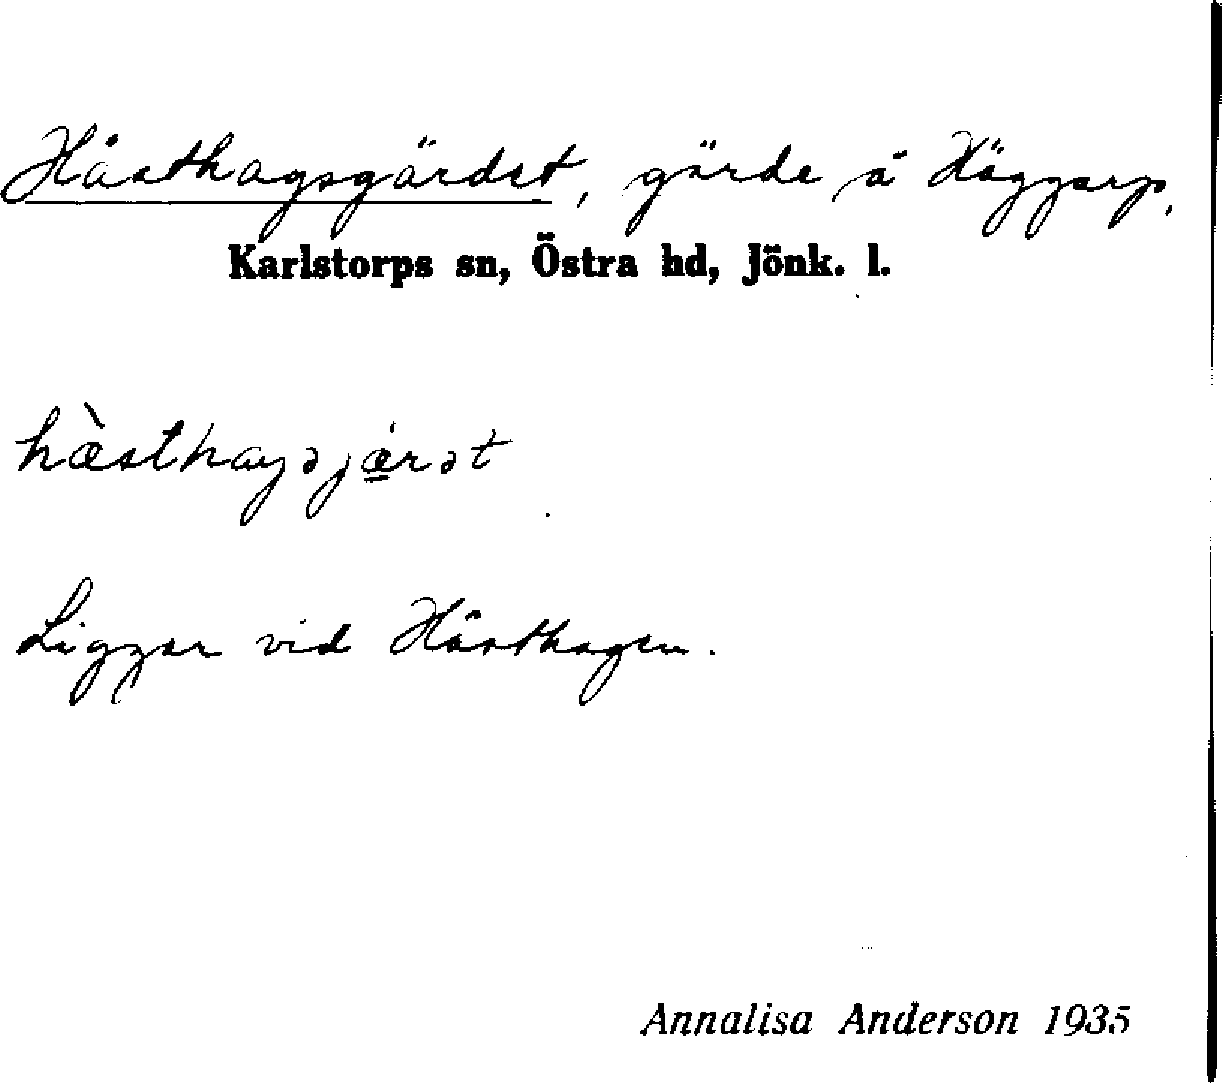 Hästhagsgärdet, gärde å Häggarp,
Karlstorps sn, Östra hd, Jönk. l.
hæ̀sthagəjǽ̠rət
Ligger vid Hästhagen.
Annalisa Anderson 1935